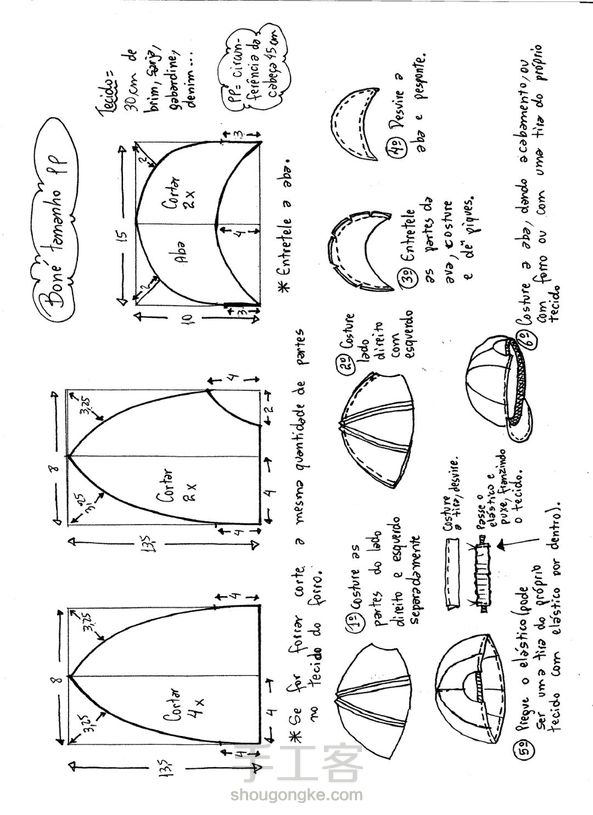 Boné tamanho PP
Tecido=
30 cm de
brim, sarja,
gabardine,
denim...
PP = circun-
ferência da
cabeça 45 cm
8
13,5
3,25
3,25
Cortar
4x
4
4
4
8
13,5
3,25
3,25
Cortar
2x
4
4
4
2
15
10
2
2
Aba
Cortar
2x
3
4
3
* Entretele a aba.
* Se for forrar corte a mesma quantidade de partes
no tecido do forro.
1º Costure as
partes do lado
direito e esquerdo
separadamente
2º Costure
lado
direito
com
esquerdo
3º Entretele
as partes da
ava, costure
e dê piques.
4º Desvire a
aba e pesponte.
5º Pregue o elástico (pode
ser uma tira do próprio
tecido com elástico por dentro).
Costure
a tira, desvire.
Passe o
elástico e
puxe, franzindo
o tecido.
6º Costure a aba, dando acabamento, ou
com forro ou com uma tira do próprio
tecido
手工客
shougongke.com